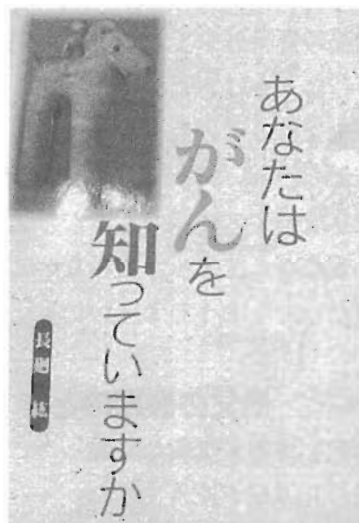 あなたは
がんを
知っていますか
長廻 紘